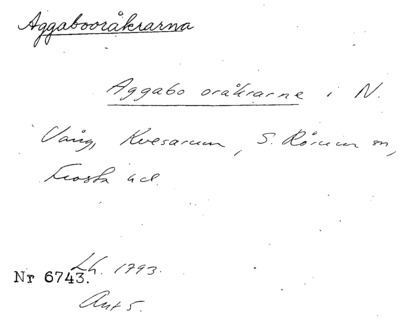 Aggabooråkrarna
Aggabo oråkrarne i N.
Vång, Kvesarum, S. Rörum sn,
Frosta hd.
Lh. 1793.
Nr 6743.
Ant 5.